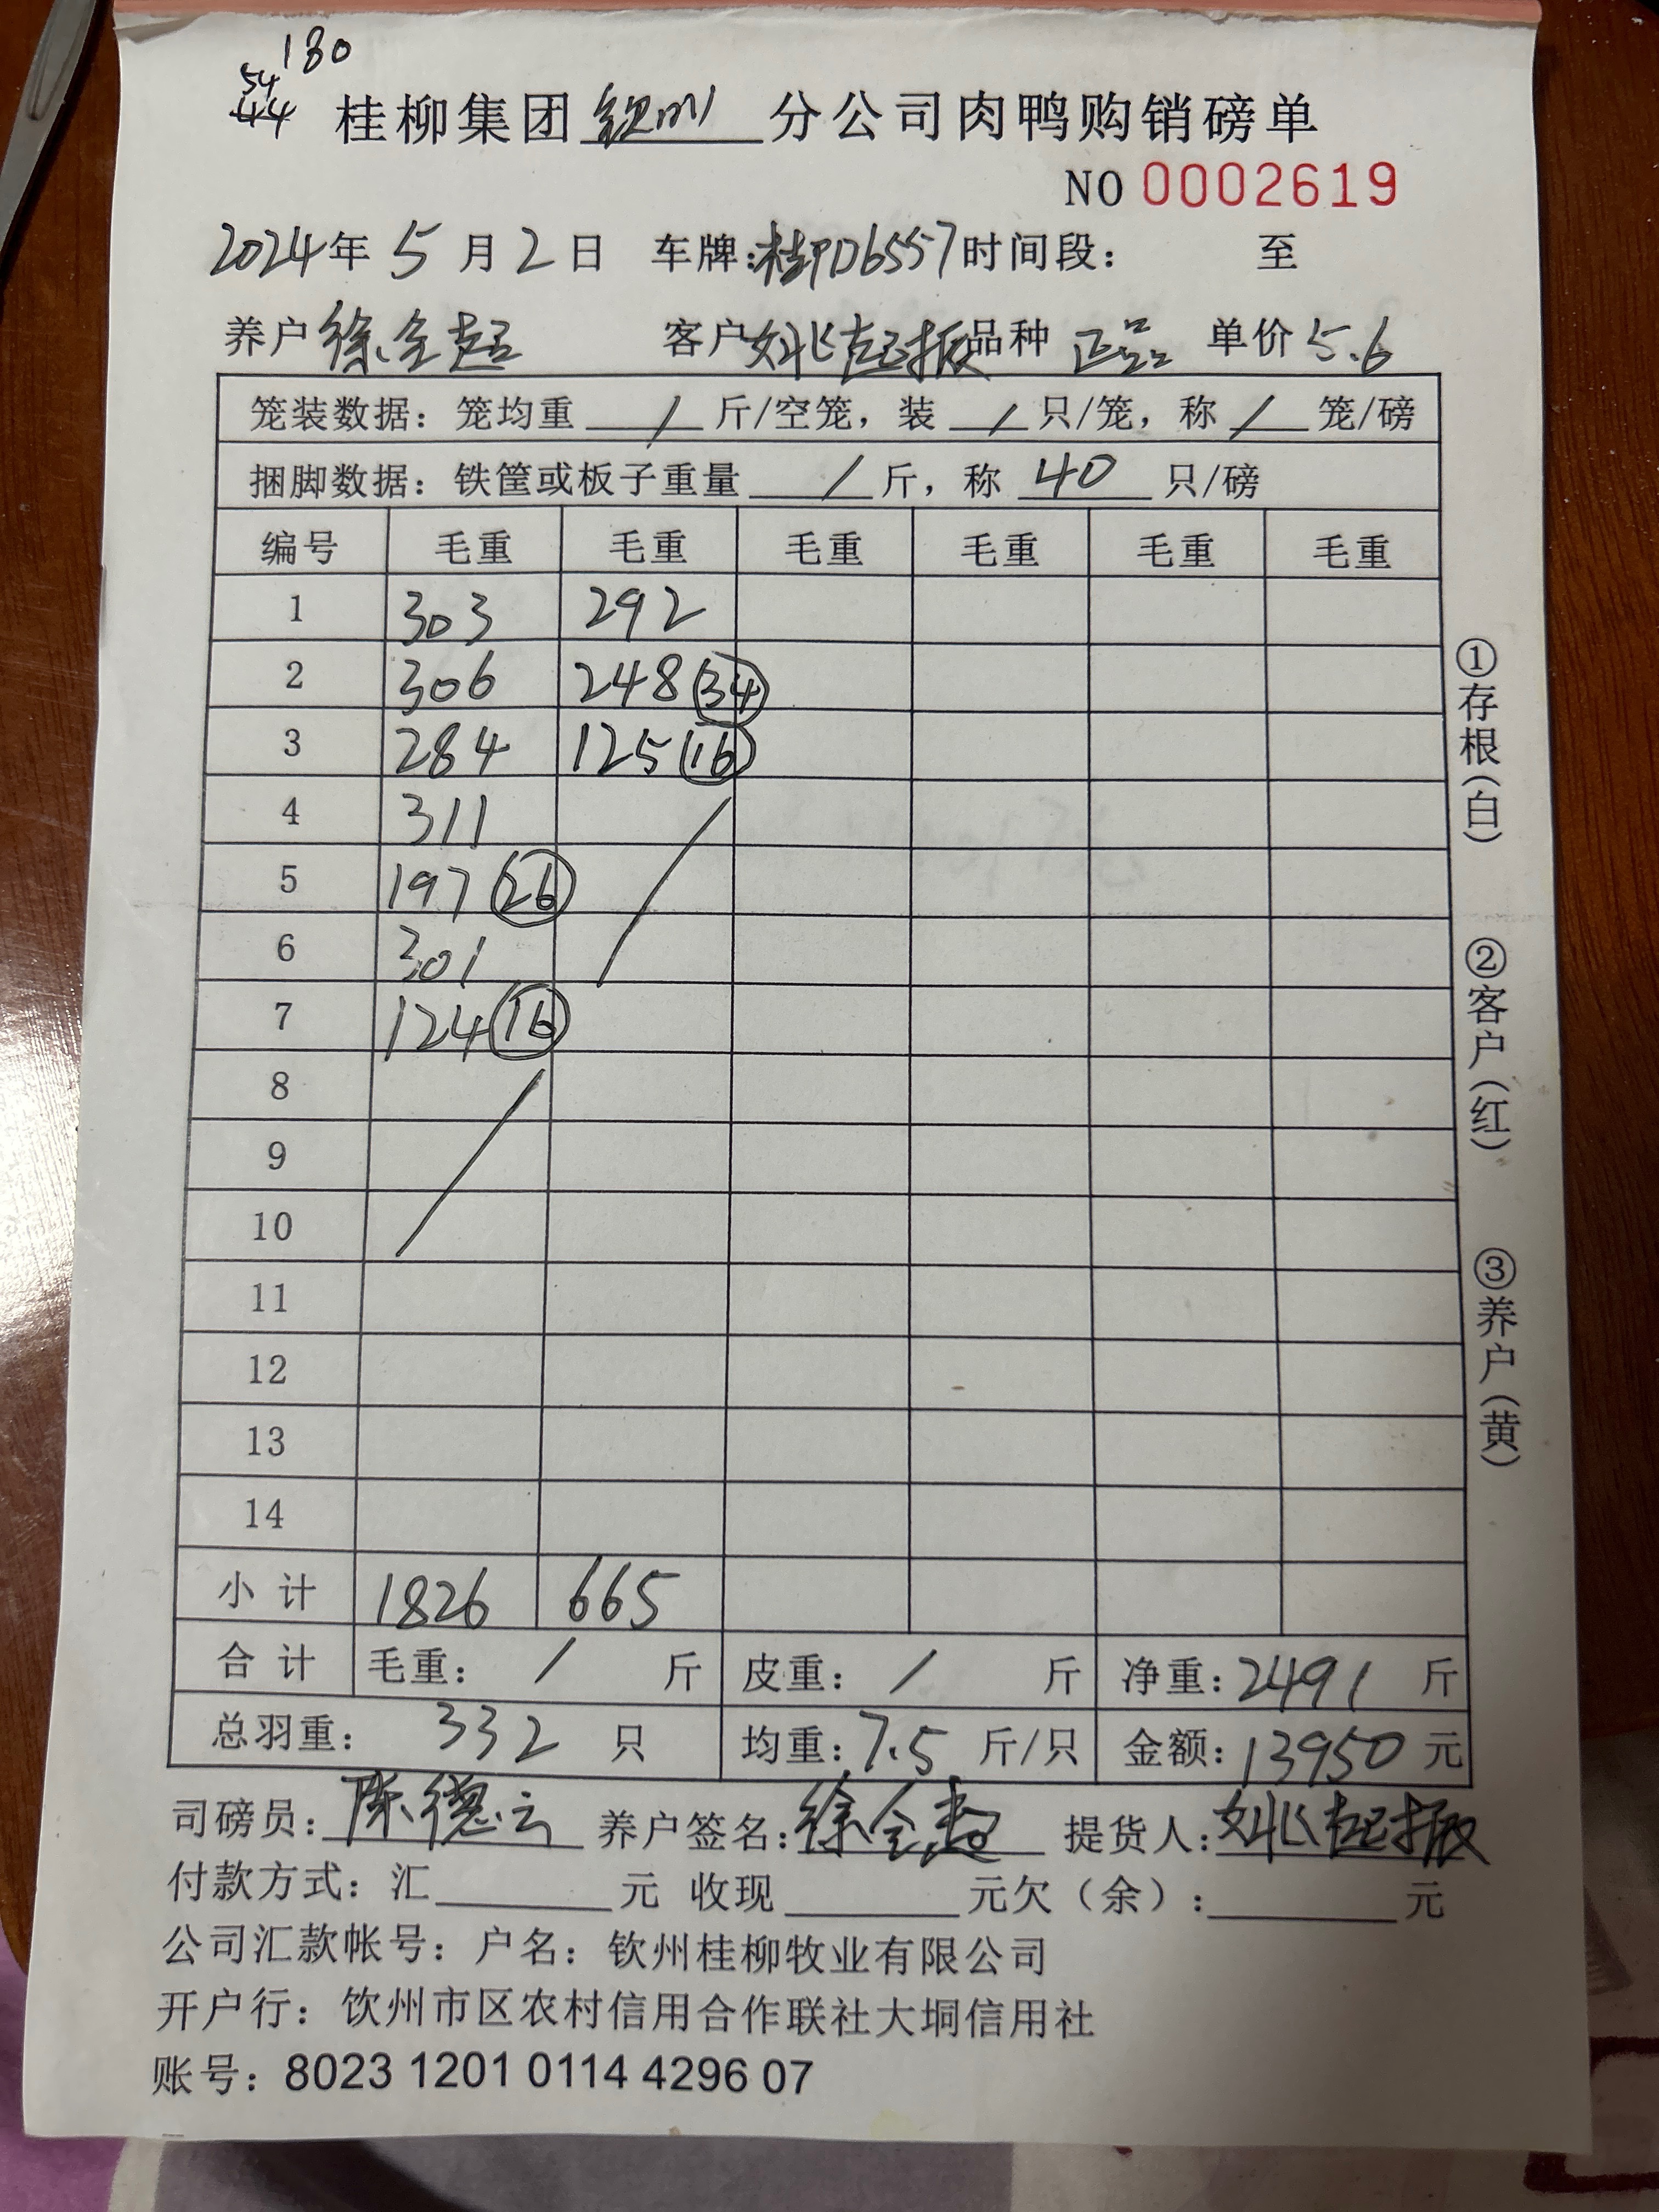 180
54
44
桂柳集团钦州分公司肉鸭购销磅单
NO 0002619
2024年5月2日 车牌:桂PD6557时间段: 至
养户徐全超 客户姚起振品种 正品 单价5.6
笼装数据: 笼均重 / 斤/空笼, 装 / 只/笼, 称 / 笼/磅
捆脚数据: 铁筐或板子重量 / 斤, 称 40 只/磅
编号 毛重 毛重 毛重 毛重 毛重 毛重
1 303 292
2 306 248 34
3 284 125 16
4 311
5 197 26
6 301
7 124 16
8
9
10
11
12
13
14
小计 1826 665
合计 毛重: / 斤 皮重: / 斤 净重:2491 斤
总羽重: 332 只 均重:7.5 斤/只 金额:13950 元
司磅员: 陈德云 养户签名:徐全超 提货人:姚起振
付款方式: 汇 元 收现 元欠(余): 元
公司汇款帐号: 户名: 钦州桂柳牧业有限公司
开户行: 饮州市区农村信用合作联社大垌信用社
账号: 8023 1201 0114 4296 07
①存根(白)
②客户(红)
③养户(黄)